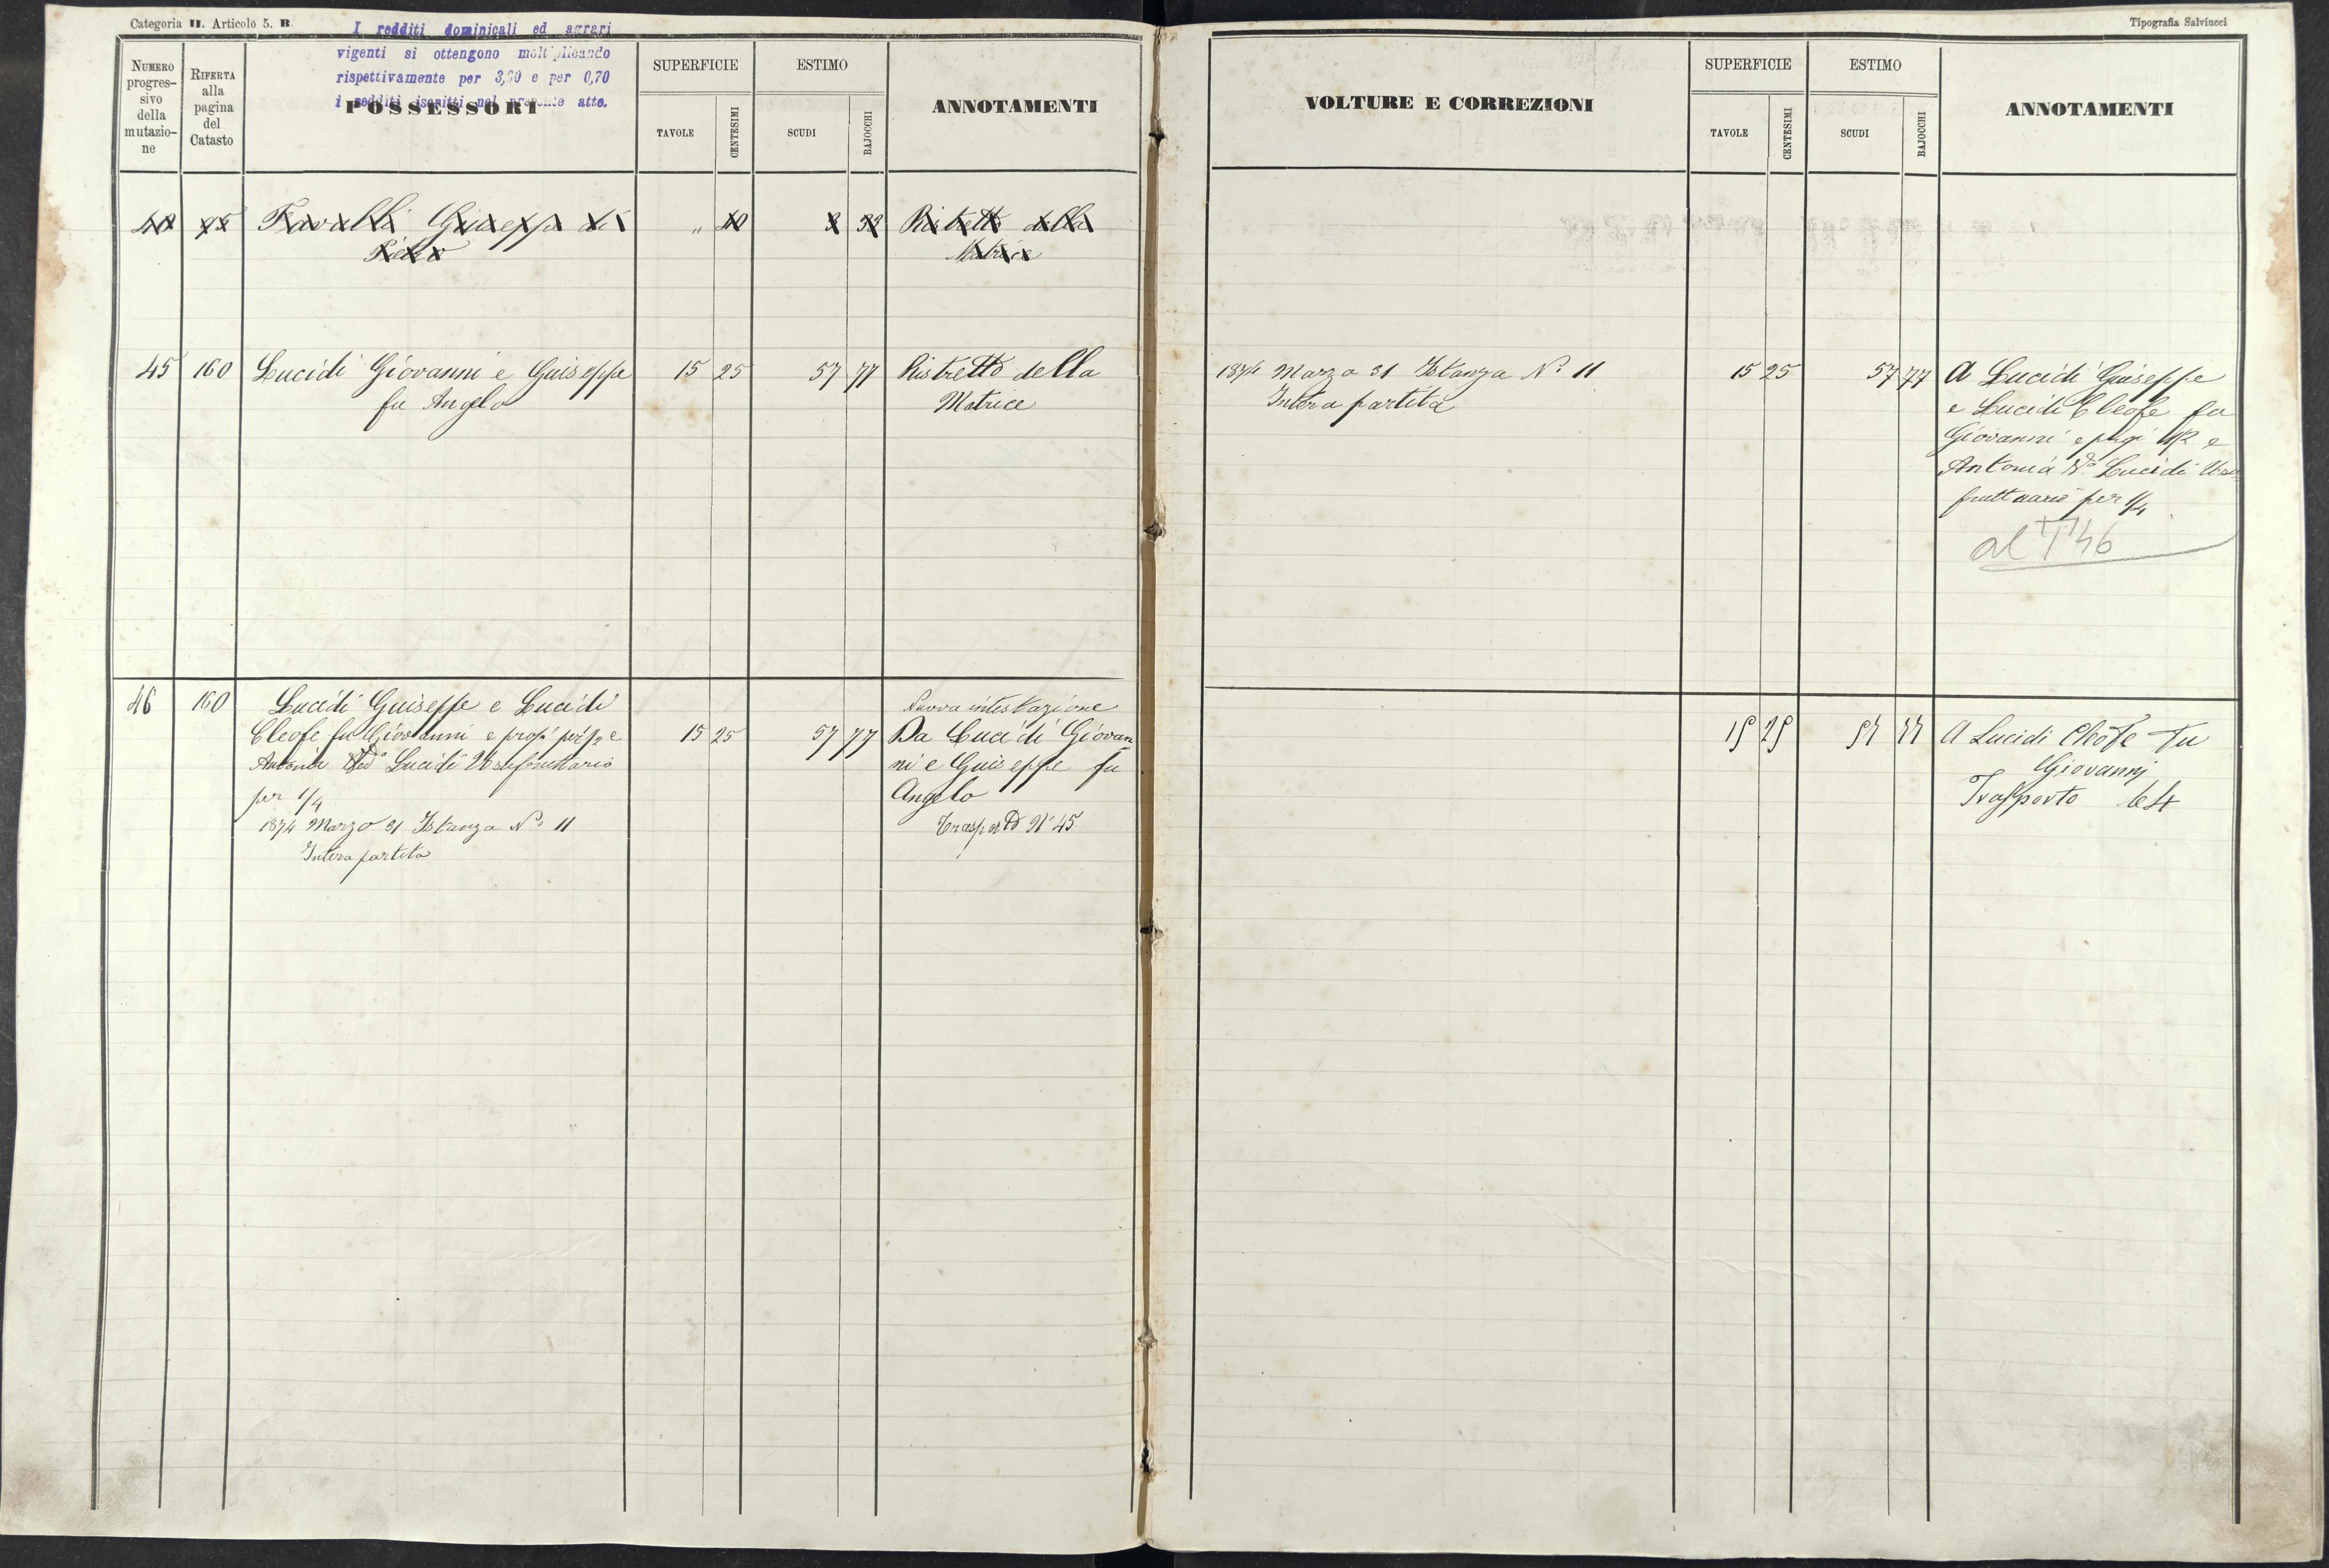 Categoria II. Articolo 5. B.
I redditi dominicali ed agrari
vigenti si ottengono moltiplicando
rispettivamente per 3,60 e per 0,70
i redditi iscritti nel presente atto.
NUMERO progres- sivo della mutazio- ne
RIFERTA alla pagina del Catasto
POSSESSORI
SUPERFICIE
TAVOLE
CENTESIMI
ESTIMO
SCUDI
BAJOCCHI
ANNOTAMENTI
Giuseppe di „ 10 Ristretto della
Pietro Matrice
45 160 Lucidi Giovanni e Guiseppe 15 25 57 77 Ristretto della
fu Angelo Matrice
46 160 Lucidi Guiseppe e Lucidi Nuova intestazione
Cleofe fu Giovanni e 15 25 57 77 Da Lucidi Giovan
Antonia Lucidi Usufruttario ni e Guiseppe fu
per 1/4 Angelo
1874 Marzo 31 Istanza N° 11 Trasporto N° 45
Intera partita
Tipografia Salviucci
VOLTURE E CORREZIONI
SUPERFICIE
TAVOLE
CENTESIMI
ESTIMO
SCUDI
BAJOCCHI
ANNOTAMENTI
1874 Marzo 31 Istanza N° 11 15 25 57 77 A Lucidi Guiseppe
Intera partita e Lucidi Cleofe fu
Giovanni e 1/2 e
Antonia Va Lucidi Usu
fruttuario per 1/4
al T 46
15 25 57 77 A Lucidi Cleofe fu
Giovanni
Trasporto